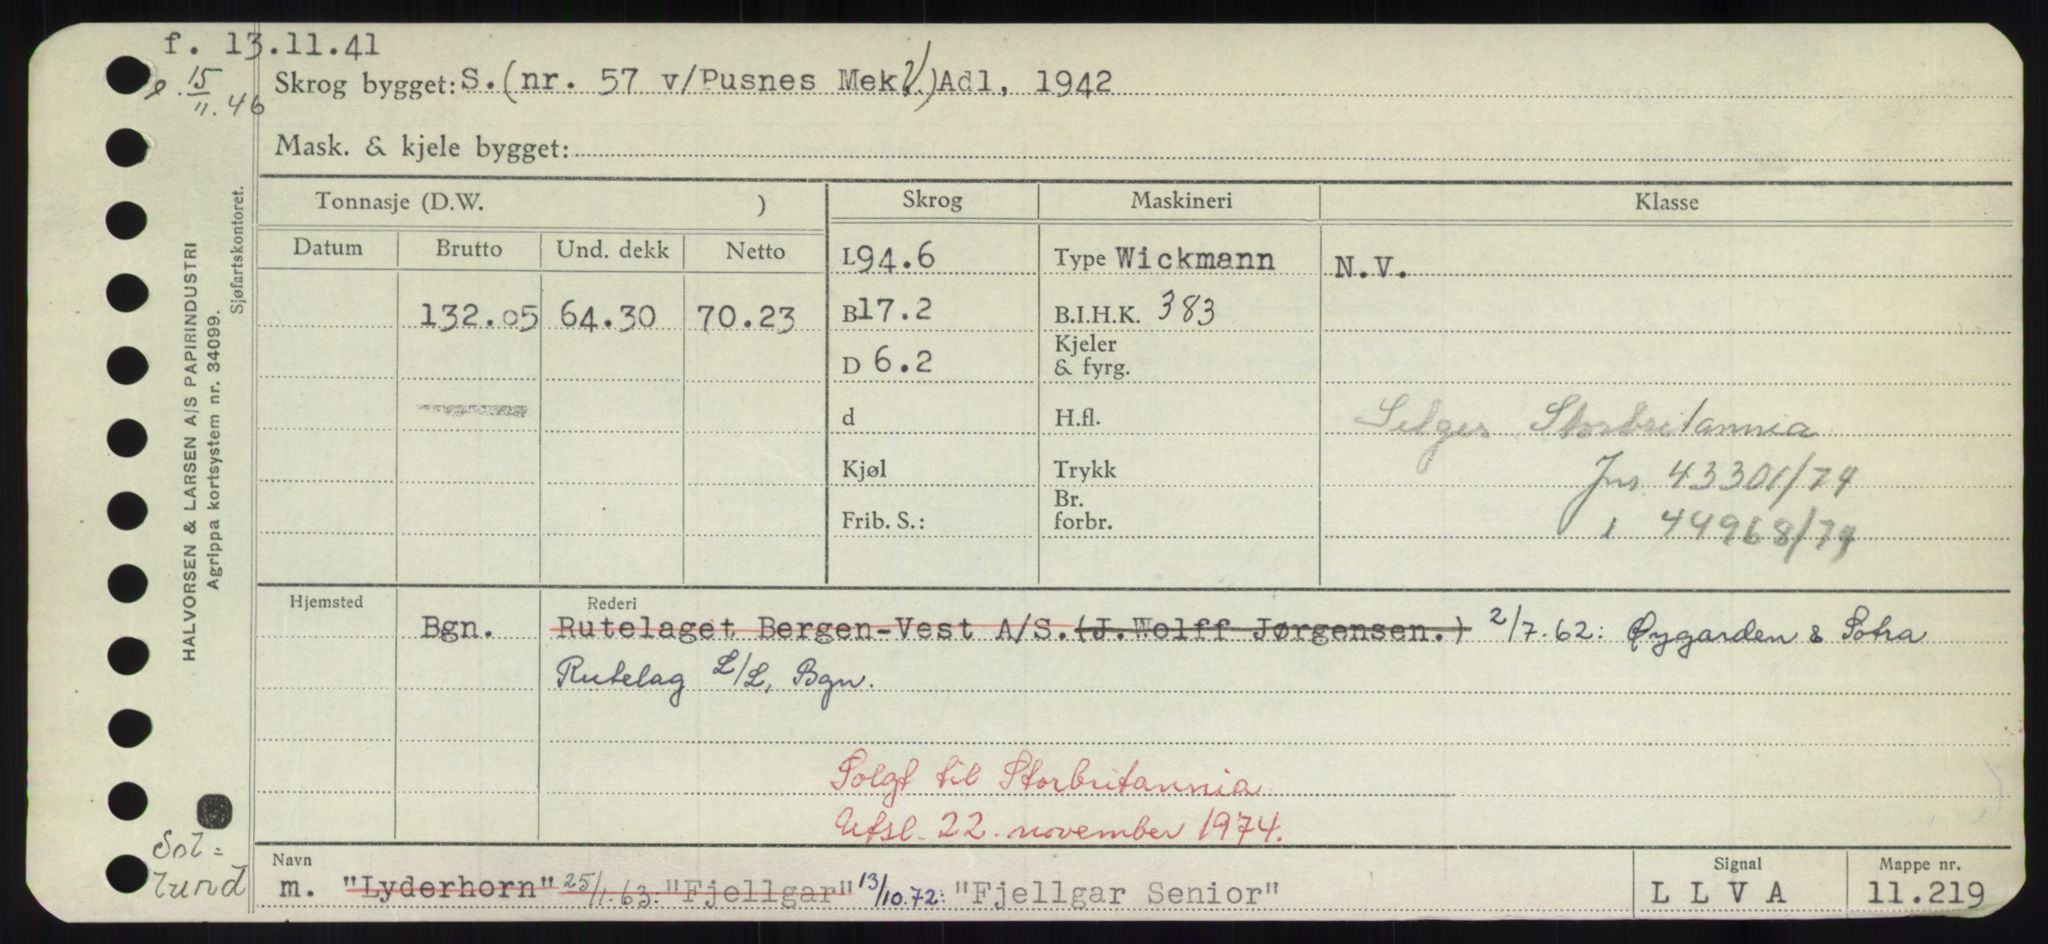 f. 13.11.41
15/11.46
Skrog bygget: S. (nr. 57 v/Pusnes Mek.V.) Adl, 1942
Mask. & kjele bygget:
Tonnasje (D.W. )
Skrog
Maskineri
Klasse
Datum
Brutto
Und. dekk
Netto
L 94.6
Type Wickmann
N.V.
132.05
64.30
70.23
B 17.2
B.I.H.K. 383
D 6.2
Kjeler
& fyrg.
d
H.fl.
Selges Storbritannia
Kjøl
Trykk
Jnr. 43301/74
Frib. S.:
Br.
forbr.
44968/74
Hjemsted
Rederi
Bgn.
Rutelaget Bergen-Vest A/S. (J.Wolff Jørgensen.) 2/7.62: Øygarden & Sotra
Rutelag L/L, Bgn.
Solgt til Storbritannia
Utsl. 22. november 1974.
Navn
m. "Lyderhorn" 25/1.63: "Fjellgar" 13/10.72: "Fjellgar Senior"
Signal
L L V A
Mappe nr.
11.219
HALVORSEN & LARSEN A/S PAPIRINDUSTRI
Agrippa kortsystem nr. 34099.
Sjøfartskontoret.
Sol=
lund